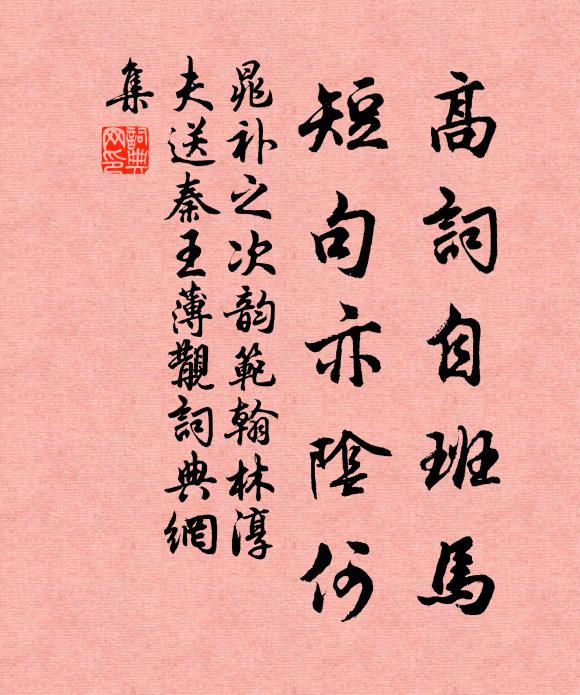 高詞自班馬
短句亦陰何
晁补之次韵範翰林淳
夫送秦王薄觏詞典網
集
詞典網印